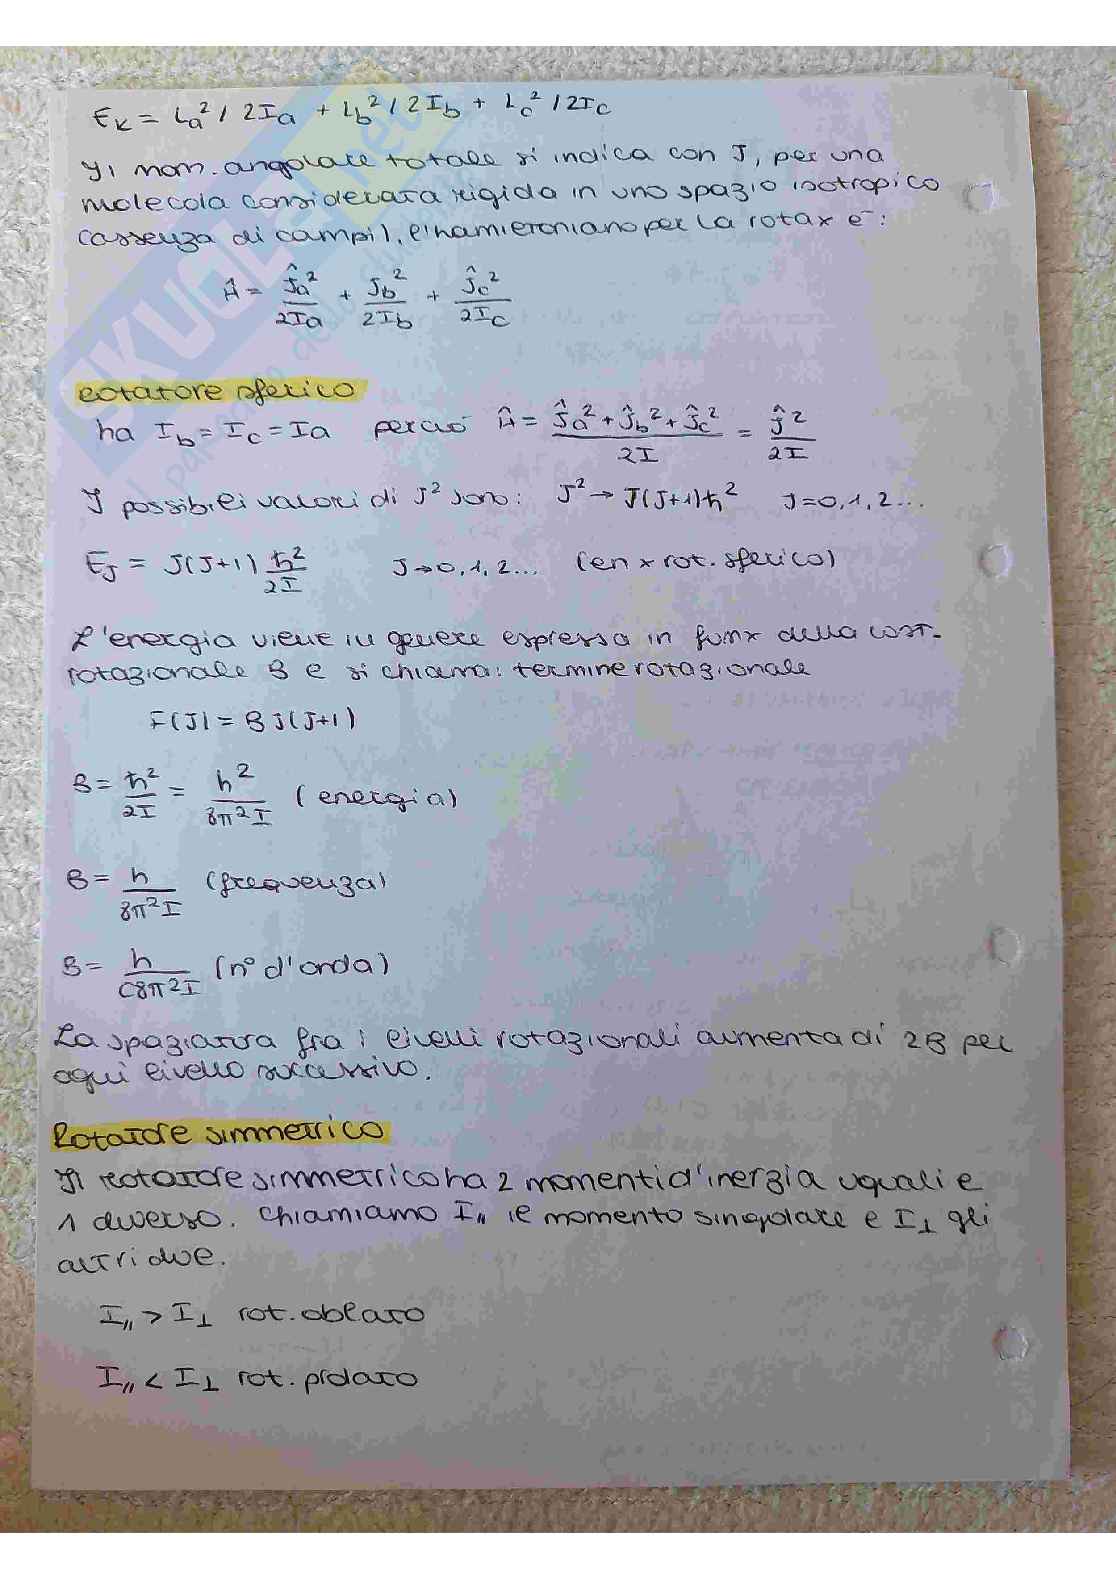 E_K = L_a² / 2I_a + L_b² / 2I_b + L_c² / 2I_c
Il mom. angolare totale si indica con J, per una
molecola considerata rigida in uno spazio isotropico
(assenza di campi), l'hamiltoniano per la rotax è:
Ĥ = Ĵ_a²/2I_a + Ĵ_b²/2I_b + Ĵ_c²/2I_c
rotatore sferico
ha I_b = I_c = I_a perciò Ĥ = (Ĵ_a² + Ĵ_b² + Ĵ_c²)/2I = Ĵ²/2I
I possibili valori di J² sono: J² → J(J+1)ħ² J=0,1,2...
E_J = J(J+1) ħ²/2I J→0,1,2... (en x rot. sferico)
L'energia viene in genere espressa in funx della cost.
rotazionale B e si chiama: termine rotazionale
F(J) = B J(J+1)
B = ħ²/2I = h²/8π²I (energia)
B = h/8π²I (frequenza)
B = h/C8π²I (n° d'onda)
La spaziatura fra i livelli rotazionali aumenta di 2B per
ogni livello successivo.
Rotatore simmetrico
Il rotatore simmetrico ha 2 momenti d'inerzia uguali e
1 diverso. Chiamiamo I_∥ il momento singolare e I_⊥ gli
altri due.
I_∥ > I_⊥ rot. oblato
I_∥ < I_⊥ rot. prolato